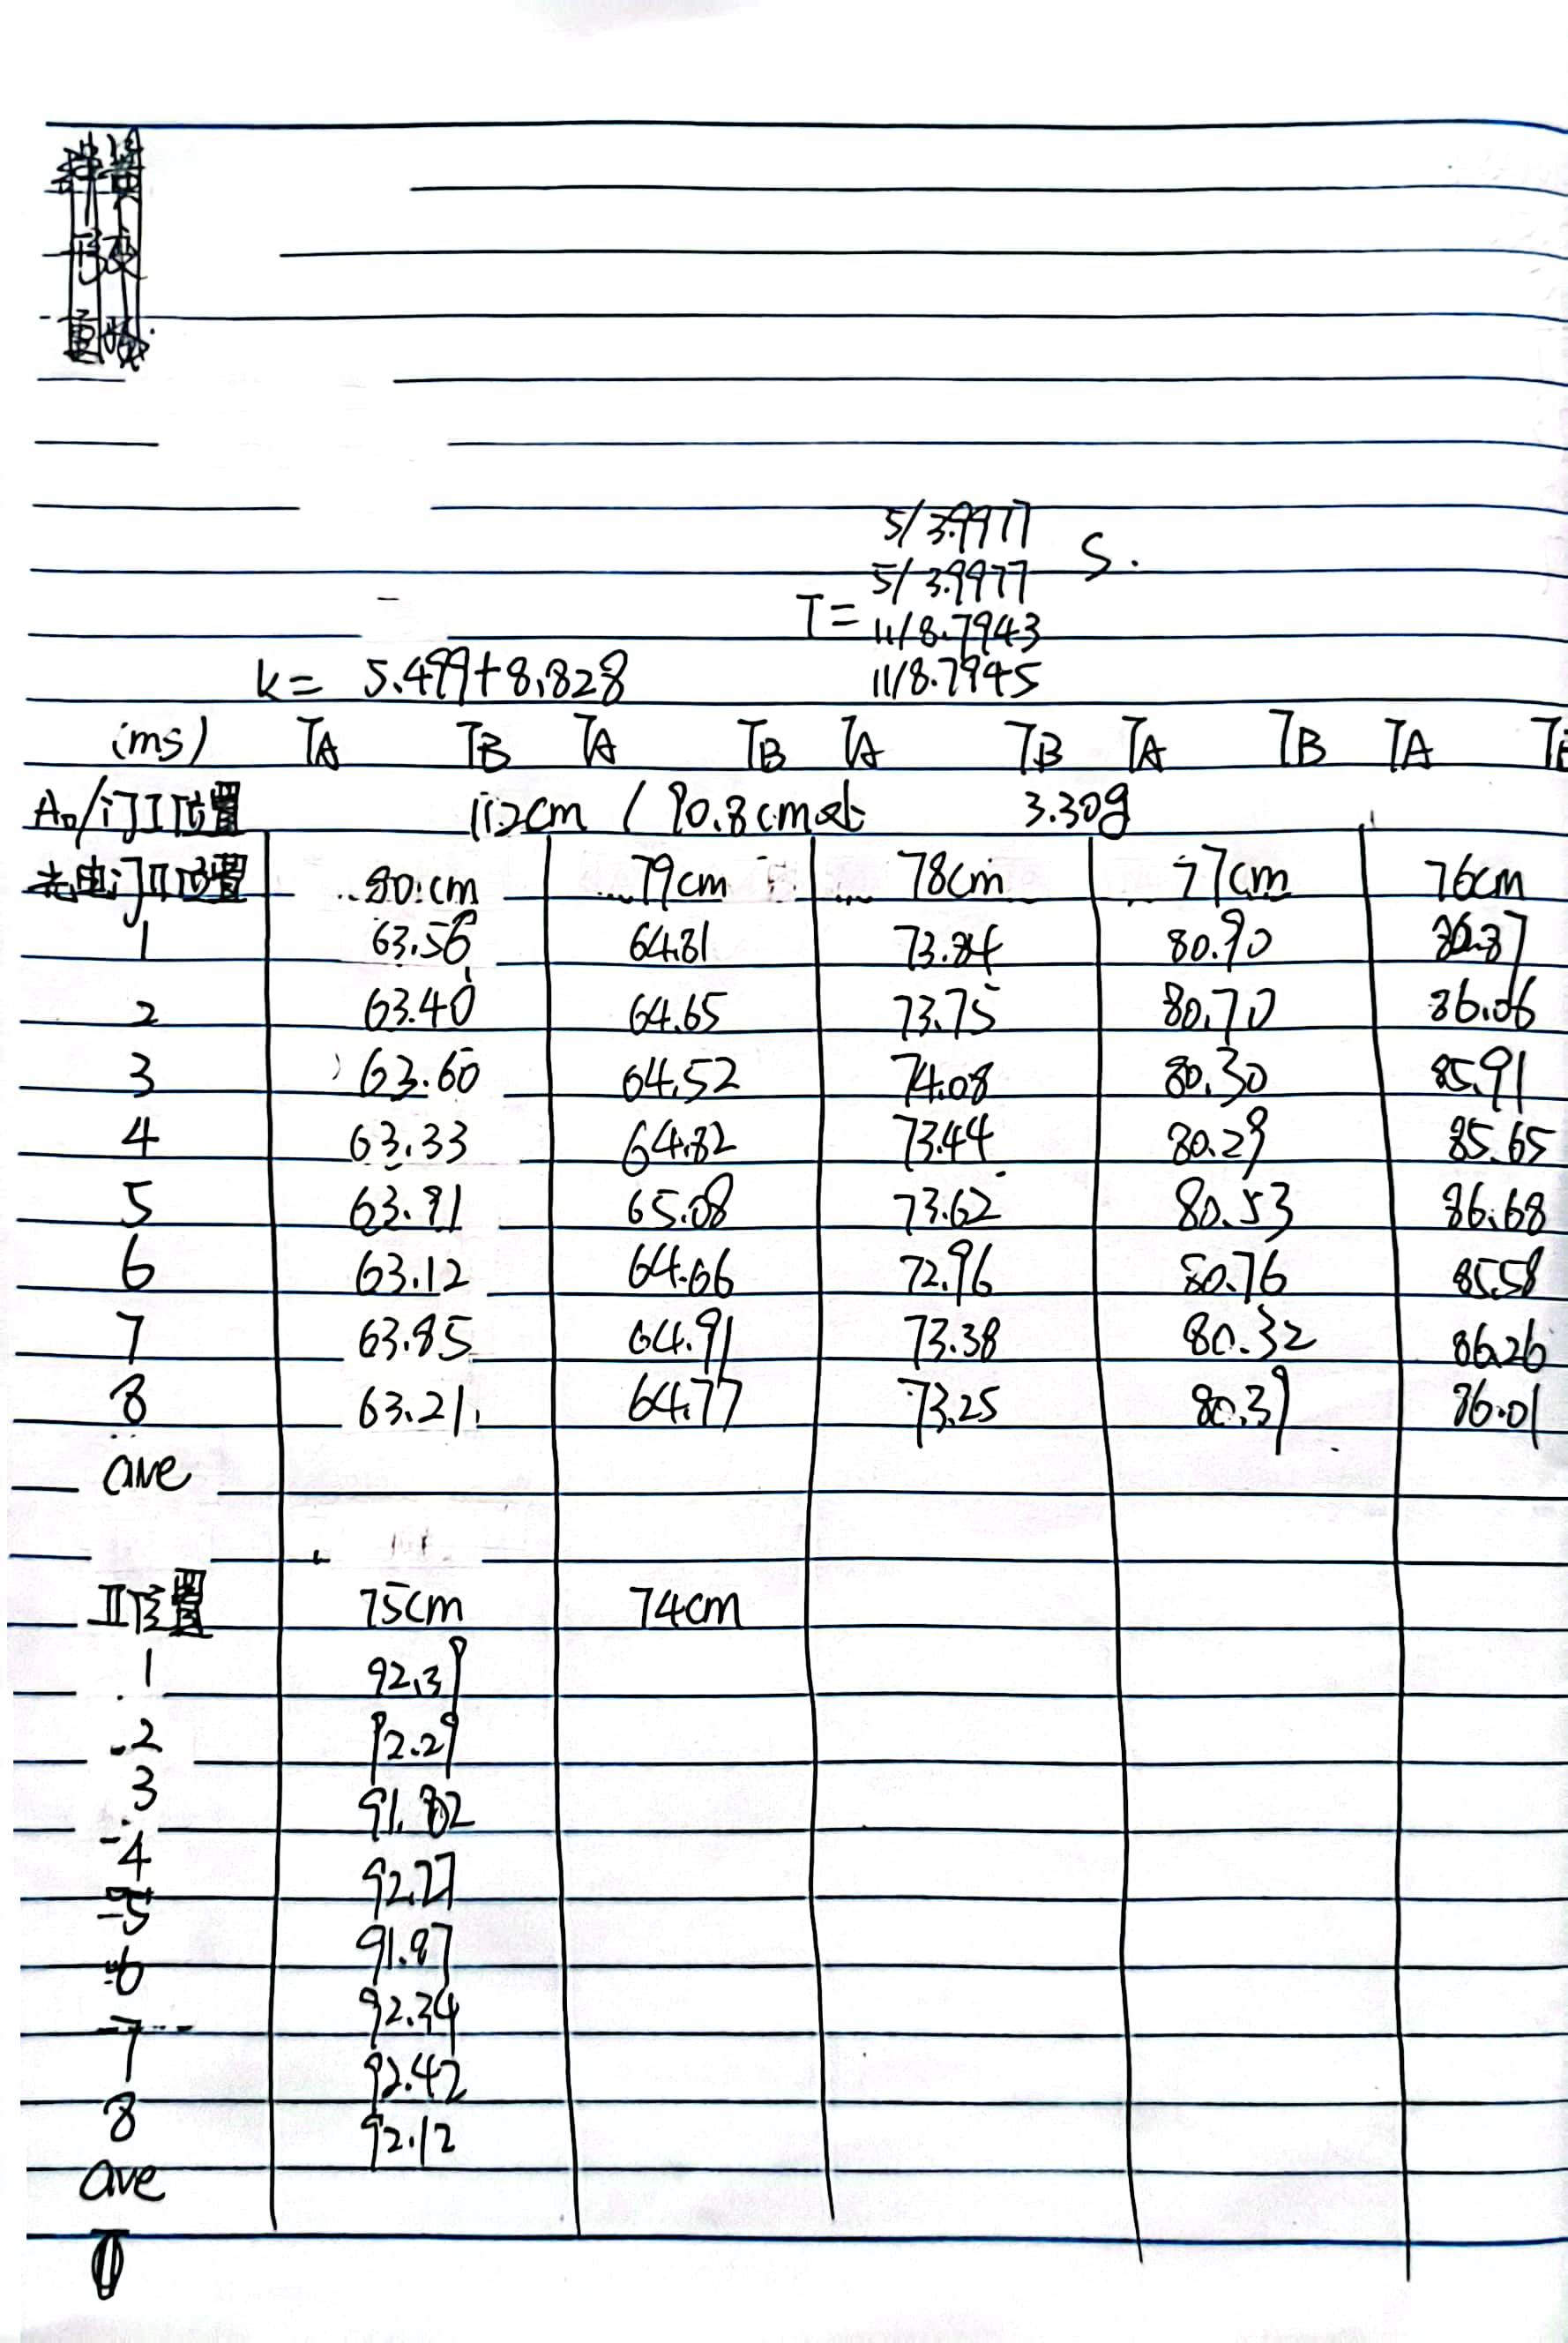 弹簧
形变
量
5/3.9977
5/3.9977 S.
T= 11/8.7943
k= 5.499+8.828 11/8.7945
(ms) TA TB TA TB TA TB TA TB TA
A₀/门I位置 112cm / 90.8cm处 3.30g
光电门II位置 80cm 79cm 78cm 77cm 76cm
1 63.56 64.81 73.84 80.90
2 63.40 64.65 73.75 80.70 86.06
3 63.60 64.52 74.08 80.30 85.91
4 63.33 64.82 73.44 80.29 85.65
5 63.91 65.08 73.62 80.53 86.68
6 63.12 64.66 72.96 80.76 85.58
7 63.85 64.91 73.38 80.32 86.26
8 63.21 64.77 73.25 80.39 86.01
ave
II位置 75cm 74cm
1 92.39
2 92.29
3 91.82
4 92.27
5 91.97
6 92.34
7 92.42
8 92.12
ave